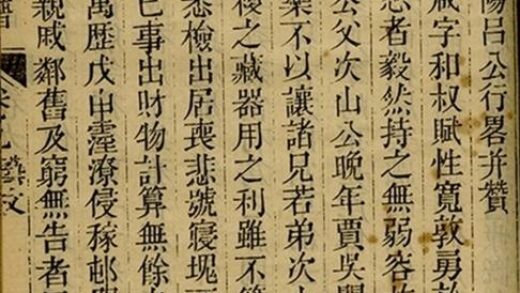 陽呂公行畧并贊
咸字和叔賦性寬敦勇敢
忍者毅然持之無弱容
公父次山公晚年賈吳閶
槩不以讓諸兄若弟次
稜之藏器用之利雖不
悉檢出居喪悲號寢塊
已事出財物計算無餘
萬歷戊申霪潦侵稼邨
親戚鄰舊及窮無告者
卷九 藝文